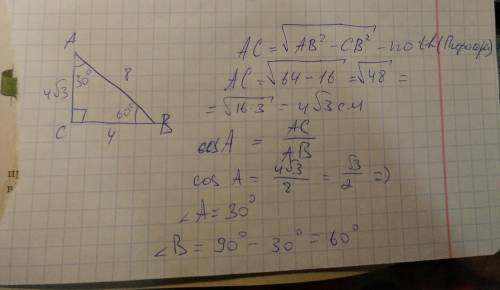 A
30°
8
4√3
60°
C
4
B
AC = √AB² - CB² - по th (Пифагор)
AC = √64 - 16 = √48 =
= √16·3 = 4√3 см
cos A = AC/AB
cos A = 4√3/8 = √3/2 =>
∠A = 30°
∠B = 90° - 30° = 60°